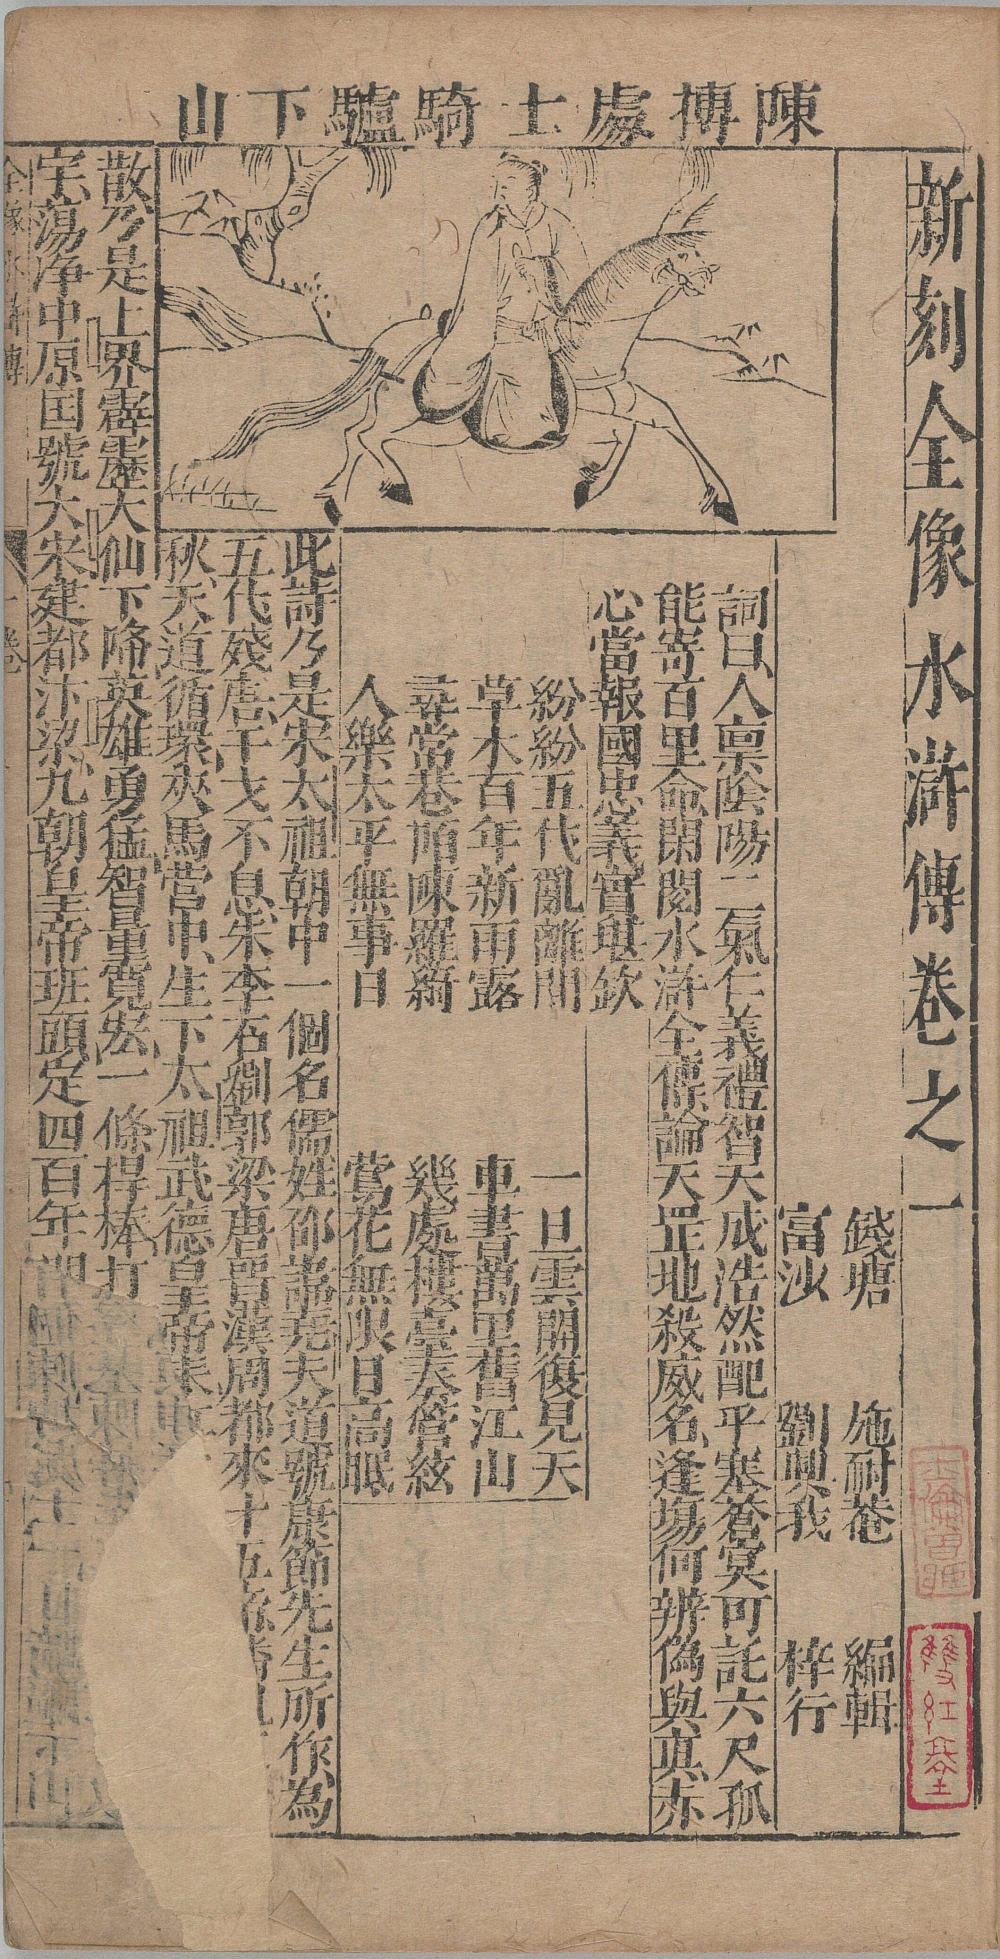 陳摶處士騎驢下山
新刻全像水滸傳卷之一
錢塘 施耐菴 編輯
富沙 劉興我 梓行
詞曰人禀陰陽二氣仁義禮智天成浩然配乎塞蒼冥可託六尺孤
能寄百里命閑閱水滸全傳論天罡地殺威名逢塲何辨偽與真赤
心當報國忠義實堪欽
紛紛五代亂離間 一旦雲開復見天
草木百年新雨露 車書萬里舊江山
尋常巷陌陳羅綺 幾處樓臺奏管絃
人樂太平無事日 鶯花無限日高眠
此詩乃是宋太祖朝中一個名儒姓邵諱堯夫道號康節先生所作為
五代殘唐干戈不息朱李石劉郭梁唐晋漢周都來十五帝
秋天道循環夾馬營中生下太祖武德皇帝來
散乃是上界霹靂大仙下降英雄勇猛智量寬宏一條桿棒打
宇蕩净中原国號大宋建都汴梁九朝皇帝班頭定四百年
全像水滸傳 一卷
雙紅堂